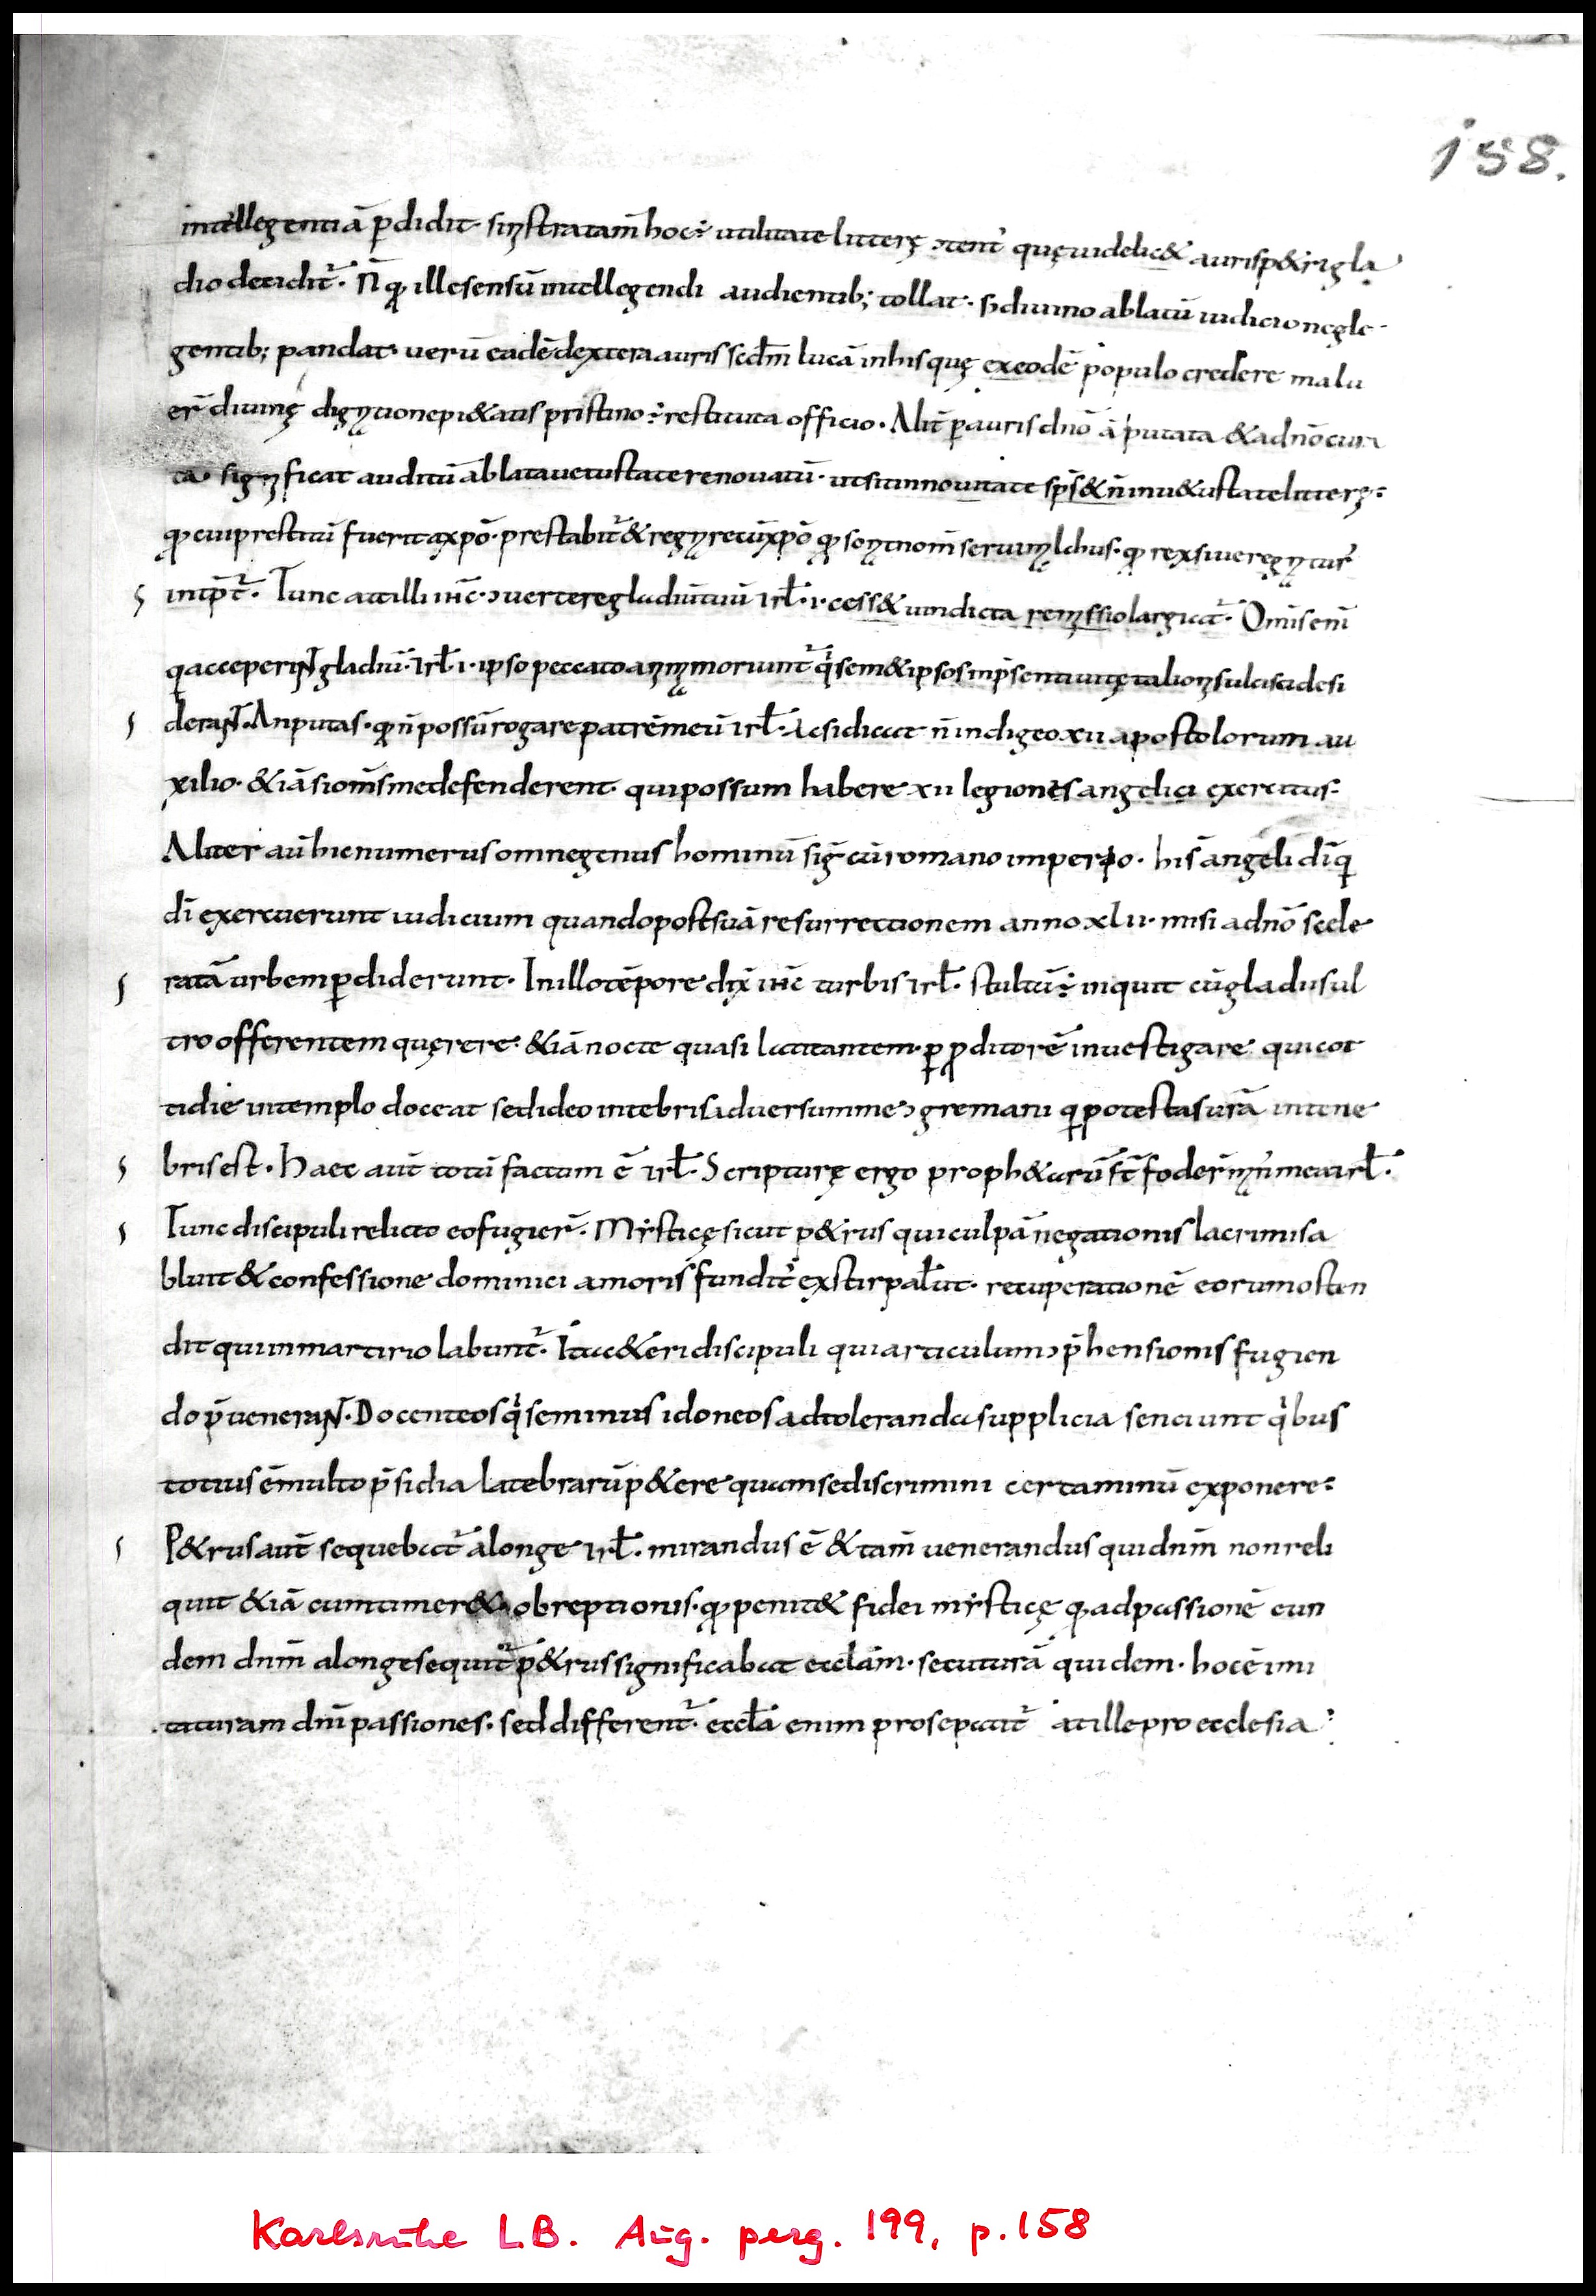 158.
intellegentiā ꝑdidit sinistratam̄ hoc ÷ utilitate litterę ɔtent' quęuidelic& aurisp&rigla
dio deciditʼ. N̄ quod illesensū intellegendi audientib; tollat · s; diuino ablatū iudicio negle
gentib; pandat · uerū eadē dextera auris secdm̄ lucā inhisquę exeodē populo credere malu
er̄ diuinę dignationepi&atis pristino ÷ restituta officio · Alit̄ ꝑauris dnō āputata &adnōcura
ta · significat auditū ablatauetustaterenouatū · utsitinnouitate sp̄s &n̄inu&ustatelitterę:
quod cuiprestitū fuerit axpō · prestabitʼ & regnarecūxpō
intp̄tʼ. Tunc aitilli ihc̄ · ɔuerteregladiūtuū irł · i · cess& uindicta remissiolargiatʼ · Om̄iseni
qiacceperiNt gladiū · irł · i · ipso peccatoanimę moriuntʼ qi sem&ipsosinp̄sentiuitę talionisulciscidesi
deraNt. Anputas · quod n̄possū rogarepatrēmeū irł · Acsidicat n̄ indigeo xii apostolorum au
xilio · &iāsiom̄smedefenderent · quipossum habere xii legiones angelici exercitus:
Aliter aū hicnumerus omnegenus hominū sig̅ cūromano imperio · his angeli dīq
dī exercuerunt iudicium quandopostsuā resurrectionem anno xlii · misi adnō scele
ratā urbemꝑdiderunt · Inillotēpore dix̄ ihc̄ turbis irł · stultū ÷ inquit cūgladiisul
troofferentem quęrere · &iā nocte quasi latitantem · ꝑ ꝓditorē inuestigare quicot
tidie intemplo doceat sedideo intebrisaduersumme ɔgremani qi potestasurā intene
brisest · Haec aūt totū factum ē irł · Scripturę ergo proph&arū st̄ foder̄ man̄ meairł ·
Tunc discipuli relicto eofugier̄ · Mysticę sicut p&rus quiculpā negationis lacrimisa
bluit & confessione dominici amoris funditʼ exstirpałit · recuperationē eorumosten
dit quiinmartirio labuntʼ · Itac&eri discipuli quiarticulum ɔp̄hensionis fugien
do p̄ueneraNt · Docenteosqi seminus idoneos adtoleranda supplicia senciunt qi bus
totius ēmulto p̄sidia latebrarū p&ere quamsediscrimini certaminū exponere:
P&rusaut̄ sequebatʼ alonge irł · mirandus ē & tam̄ uenerandus quidnm̄ nonreli
quit &iā cumtimer& obreptionis · quod penit& fidei mysticę quod adpassionē eun
dem dnm̄ alongesequitʼ p&rus significabat eccłam · secuturā quidem · hocē imi
taturam dni̅ passiones · sed differentʼ · eccła enim prosepatitʼ atille pro ecclesia:
Karlsruhe LB. Aug. perg. 199, p. 158